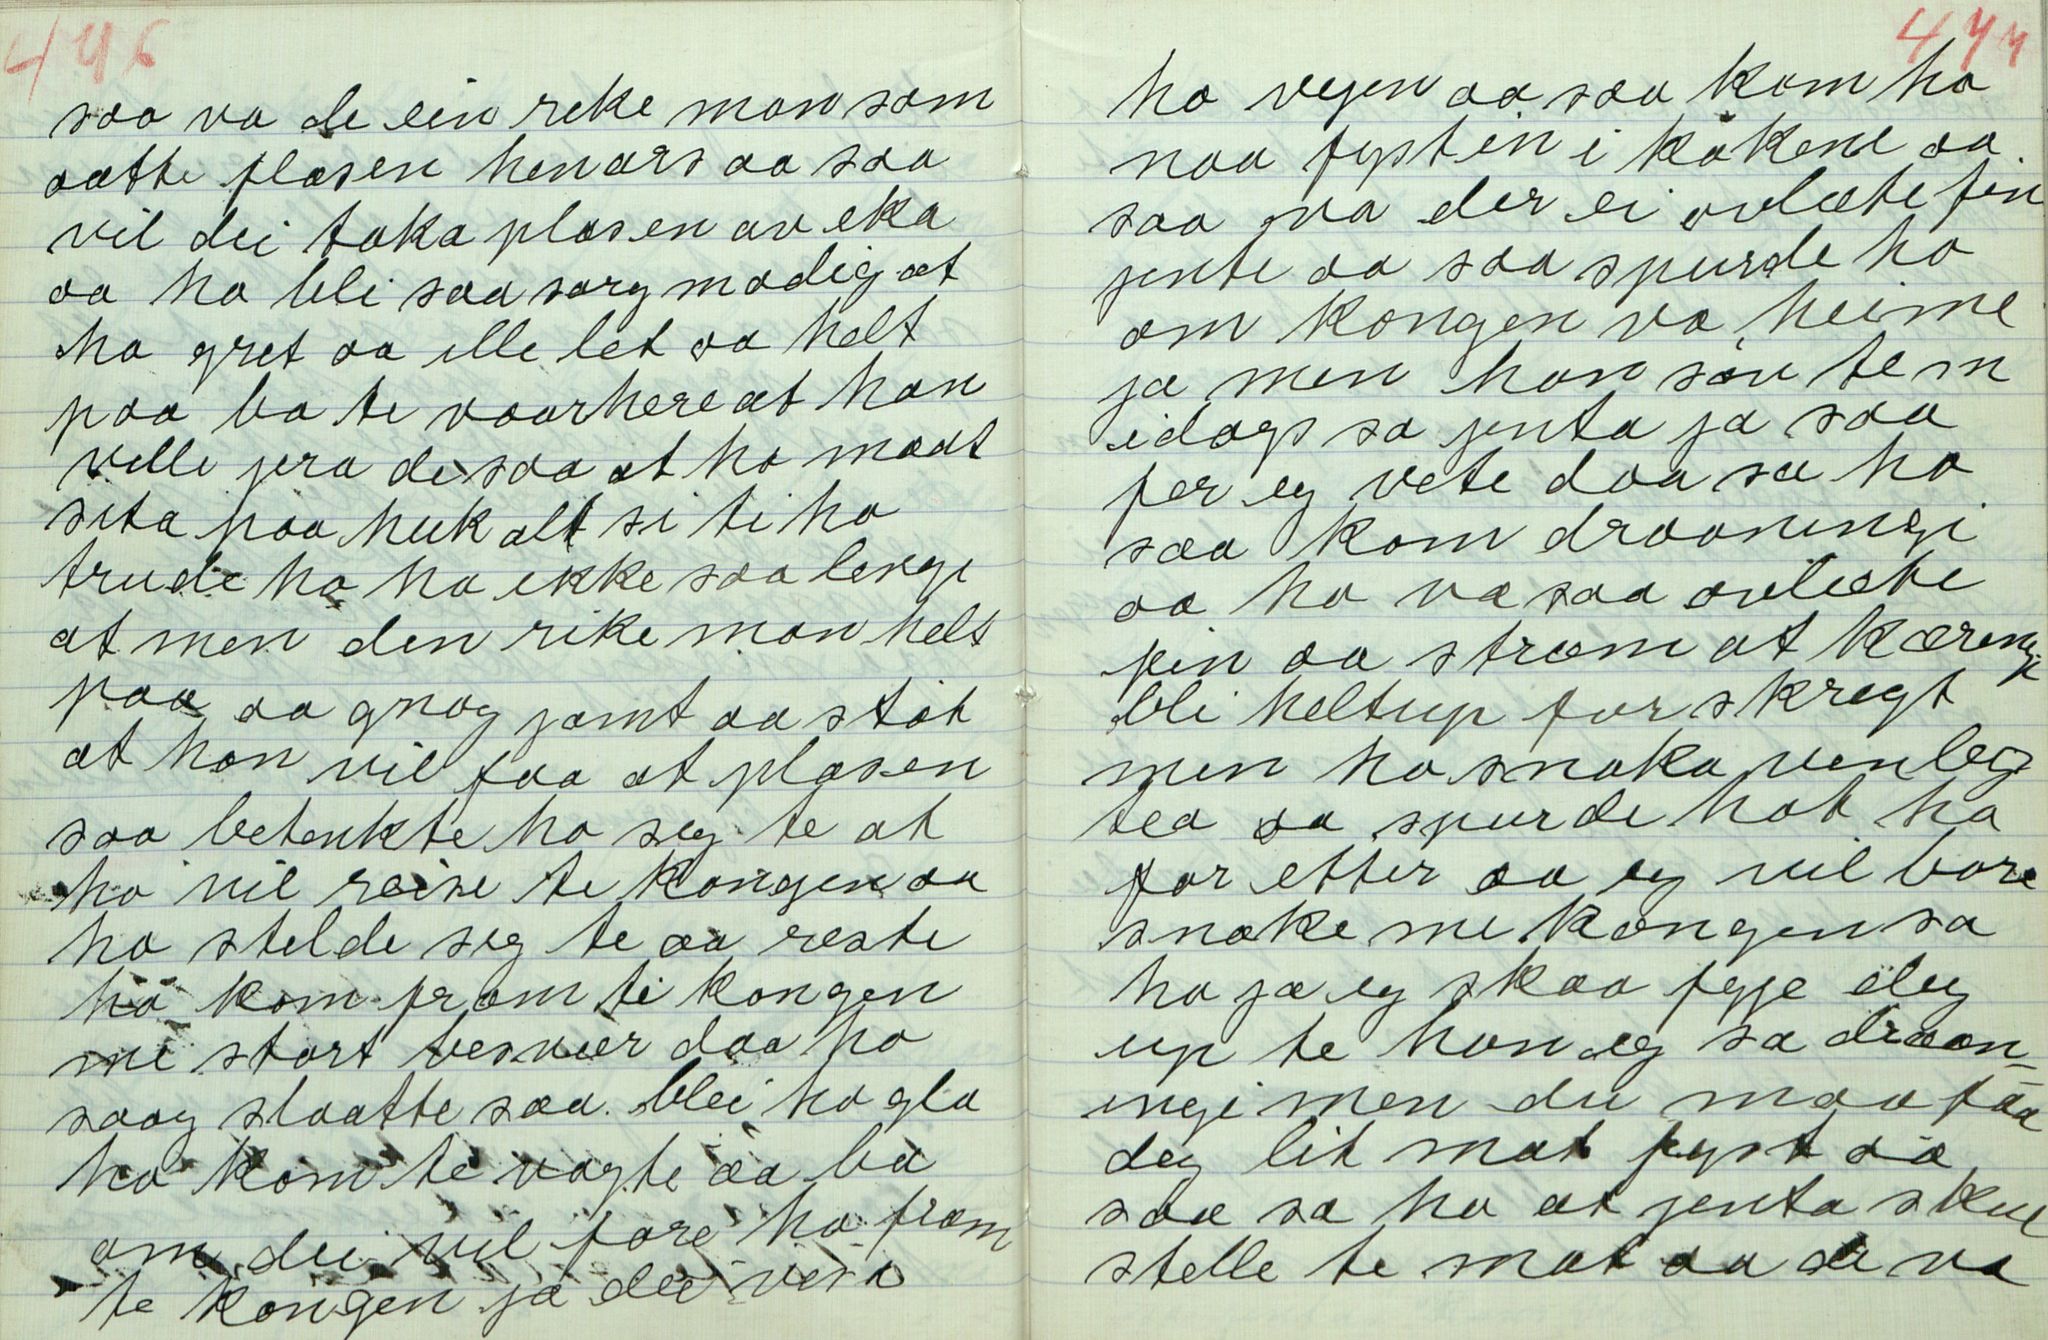 446
saa va de ein reke man som
aatte plasen henars aa saa
vil dei taka plasen av eka
aa ho bli saa sorg modig at
ho gret aa ille let aa helt
paa ba te vaarhere at han
ville jera de saa at ho maat
sita paa huk alt si ti ho
trude ho ha ikke saa lenge
at men den rike man helt
paa aa gnog jamt aa støt
at han vil faa at plasen
saa betenkte ho seg te at
ho vil reise te kongen aa
ho stelde seg te aa reste
ho kom fram ti kongen
me stort besvær daa ho
saag slaatte saa blei ho gla
ho kom te vagte aa ba
om dei vil føre ho fram
te kongen ja dei vesa
447
ho vegen aa saa kom ho
naa fyst in i køkene aa
saa va der ei ovlæte fin
jente aa saa spurde ho
om kongen va heime
ja men han søv tem
idags sa jenta ja saa
fer eg vete daa sa ho
saa kom draaningi
aa ho va saa ovlæte
fin aa stram at kæringi
bli helt up forskregt
men ho snaka venleg
tea aa spurde hot ho
for etter aa eg vil bare
snake me kongen sa
ho ja eg skaa fyje deg
up te han eg sa draan-
ingi men du maa faa
deg lit mat fyst aa
saa sa ho at jenta skul
stelle te mat aa de va